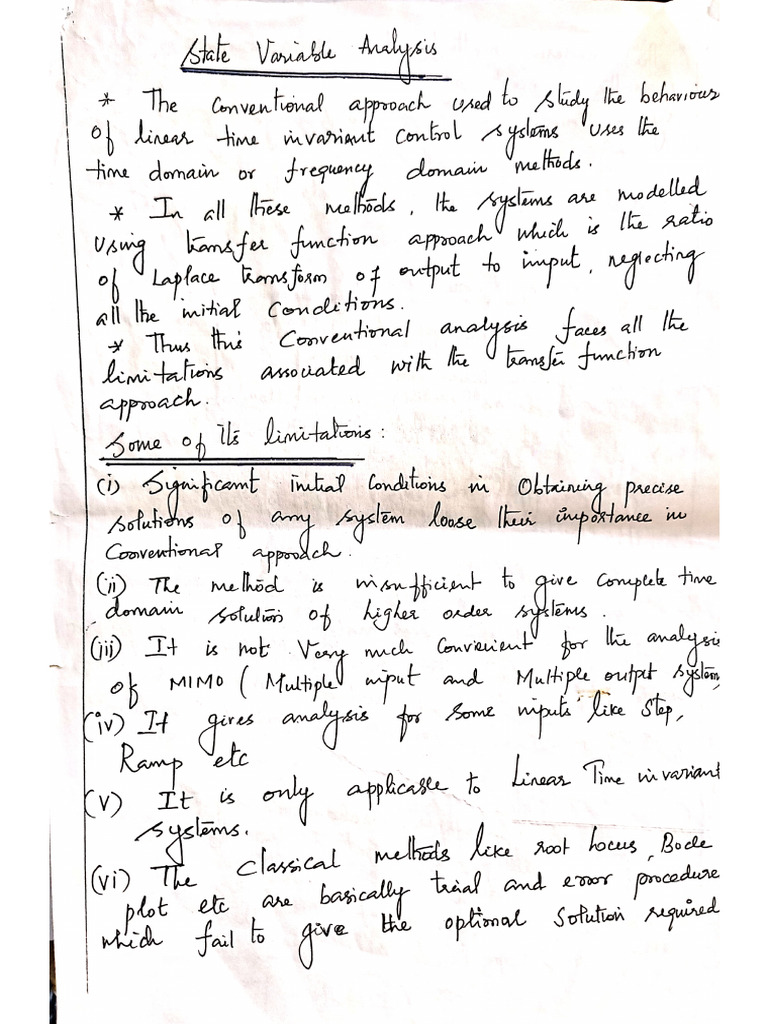 State Variable Analysis
* The Conventional approach used to study the behaviour
of linear time invariant control systems uses the
time domain or frequency domain methods.
* In all these methods, the systems are modelled
using transfer function approach which is the ratio
of Laplace transform of output to imput, neglecting
all the initial Conditions.
* Thus this Conventional analysis faces all the
limitations associated with the transfer function
approach.
Some of its limitations:
(i) Significant initial Conditions in Obtaining precise
solutions of any system loose their importance in
Conventional approach.
(ii) The method is insufficient to give Complete time
domain solution of higher order systems.
(iii) It is not Very much Convenient for the analysis
of MIMO (Multiple input and Multiple output system,
(iv) It gives analysis for some inputs like Step,
Ramp etc
(v) It is only applicable to Linear Time invariant
systems.
(vi) The Classical methods like root locus, Bode
plot etc are basically trial and error procedure
which fail to give the optional Solution required